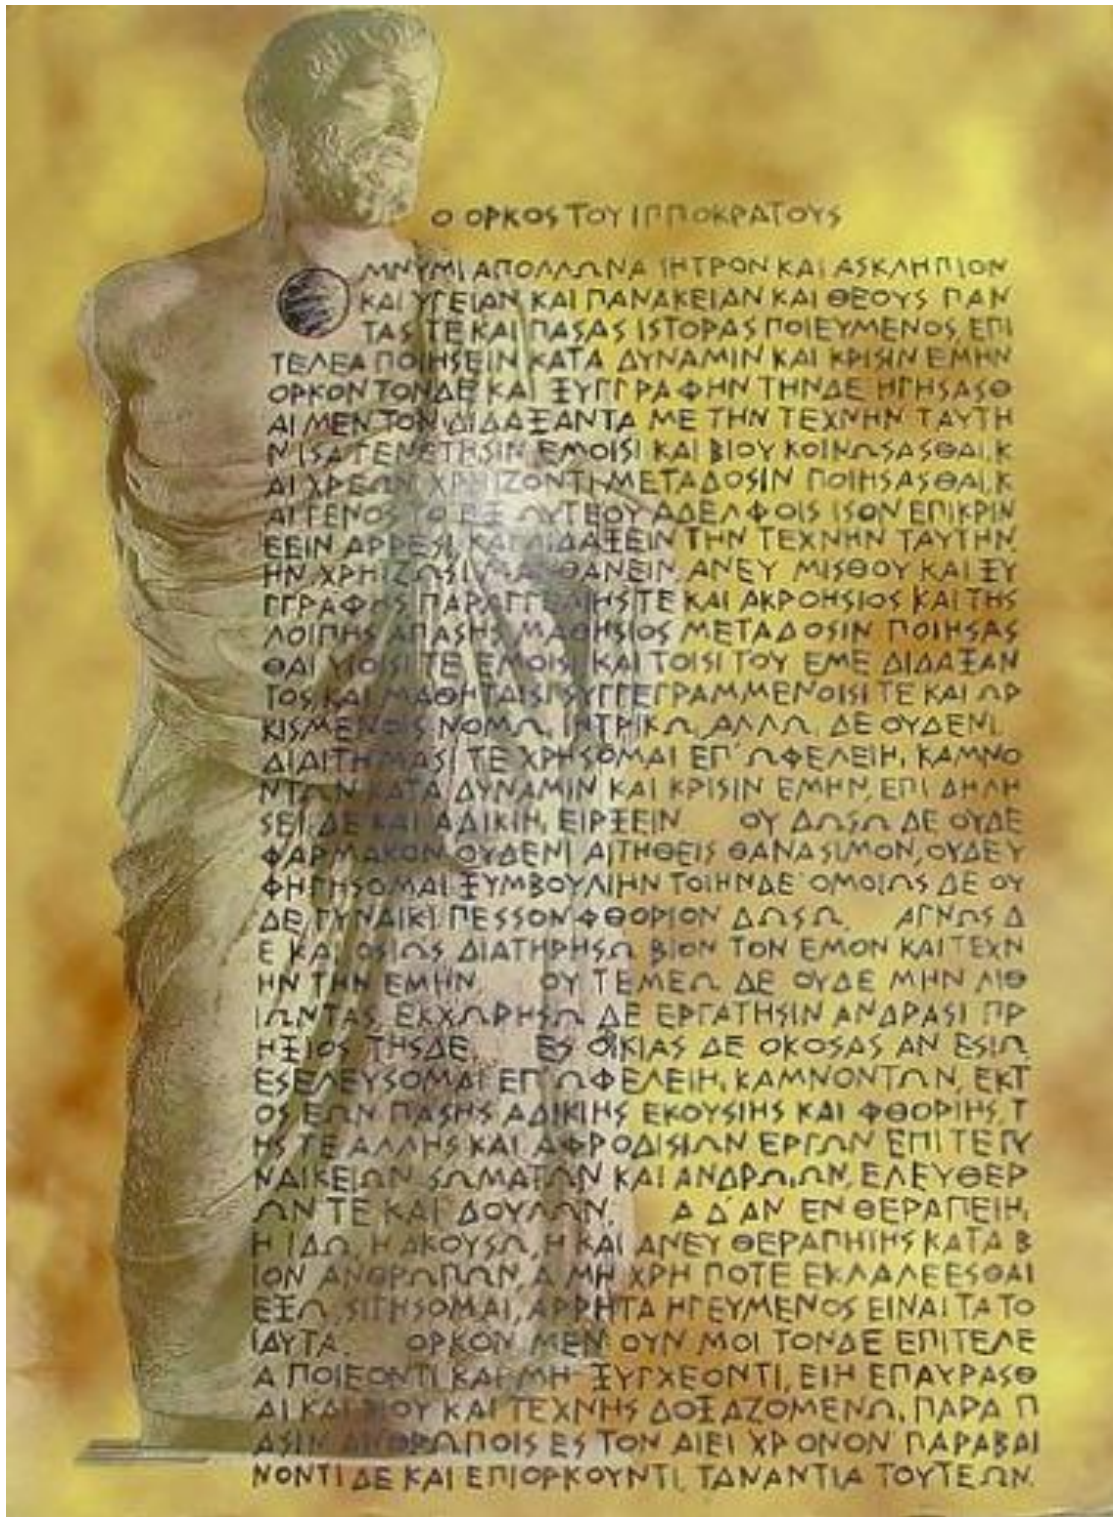 Ο ΟΡΚΟS ΤΟΥ ΙΠΠΟΚΡΑΤΟΥS
ΟΜΝΥΜΙ ΑΠΟΛΛΩΝΑ ΙΗΤΡΟΝ ΚΑΙ ΑSΚΛΗΠΙΟΝ
ΚΑΙ ΥΓΕΙΑΝ ΚΑΙ ΠΑΝΑΚΕΙΑΝ ΚΑΙ ΘΕΟΥS ΠΑΝ
ΤΑS ΤΕ ΚΑΙ ΠΑSΑS ΙSΤΟΡΑS ΠΟΙΕΥΜΕΝΟS, ΕΠΙ
ΤΕΛΕΑ ΠΟΙΗSΕΙΝ ΚΑΤΑ ΔΥΝΑΜΙΝ ΚΑΙ ΚΡΙSΙΝ ΕΜΗΝ
ΟΡΚΟΝ ΤΟΝΔΕ ΚΑΙ ΞΥΓΓΡΑΦΗΝ ΤΗΝΔΕ ΗΓΗSΑSΘ
ΑΙ ΜΕΝ ΤΟΝ ΔΙΔΑΞΑΝΤΑ ΜΕ ΤΗΝ ΤΕΧΝΗΝ ΤΑΥΤΗ
Ν ΙSΑ ΓΕΝΕΤΗSΙΝ ΕΜΟΙSΙ ΚΑΙ ΒΙΟΥ ΚΟΙΝΩSΑSΘΑΙ, Κ
ΑΙ ΧΡΕΩΝ ΧΡΗΙΖΟΝΤΙ ΜΕΤΑΔΟSΙΝ ΠΟΙΗSΑSΘΑΙ, Κ
ΑΙ ΓΕΝΟS ΤΟ ΕΞ ΩΥΤΕΟΥ ΑΔΕΛΦΟΙS ΙSΟΝ ΕΠΙΚΡΙΝ
ΕΕΙΝ ΑΡΡΕSΙ, ΚΑΙ ΔΙΔΑΞΕΙΝ ΤΗΝ ΤΕΧΝΗΝ ΤΑΥΤΗΝ,
ΗΝ ΧΡΗΙΖΩSΙ ΜΑΝΘΑΝΕΙΝ, ΑΝΕΥ ΜΙSΘΟΥ ΚΑΙ ΞΥ
ΓΓΡΑΦΗS ΠΑΡΑΓΓΕΛΙΗS ΤΕ ΚΑΙ ΑΚΡΟΗSΙΟS ΚΑΙ ΤΗS
ΛΟΙΠΗS ΑΠΑSΗS ΜΑΘΗSΙΟS ΜΕΤΑΔΟSΙΝ ΠΟΙΗSΑS
ΘΑΙ ΥΙΟΙSΙ ΤΕ ΕΜΟΙSΙ ΚΑΙ ΤΟΙSΙ ΤΟΥ ΕΜΕ ΔΙΔΑΞΑΝ
ΤΟS, ΚΑΙ ΜΑΘΗΤΑΙSΙ SΥΓΓΕΓΡΑΜΜΕΝΟΙSΙ ΤΕ ΚΑΙ ΩΡ
ΚΙSΜΕΝΟΙS ΝΟΜΩ, ΙΗΤΡΙΚΩ, ΑΛΛΩ, ΔΕ ΟΥΔΕΝΙ.
ΔΙΑΙΤΗΜΑSΙ ΤΕ ΧΡΗSΟΜΑΙ ΕΠ' ΩΦΕΛΕΙΗ, ΚΑΜΝΟ
ΝΤΩΝ ΚΑΤΑ ΔΥΝΑΜΙΝ ΚΑΙ ΚΡΙSΙΝ ΕΜΗΝ, ΕΠΙ ΔΗΛΗ
SΕΙ ΔΕ ΚΑΙ ΑΔΙΚΙΗ, ΕΙΡΞΕΙΝ ΟΥ ΔΩSΩ ΔΕ ΟΥΔΕ
ΦΑΡΜΑΚΟΝ ΟΥΔΕΝΙ ΑΙΤΗΘΕΙS ΘΑΝΑSΙΜΟΝ, ΟΥΔΕ Υ
ΦΗΓΗSΟΜΑΙ ΞΥΜΒΟΥΛΙΗΝ ΤΟΙΗΝΔΕ ΟΜΟΙΩS ΔΕ ΟΥ
ΔΕ ΓΥΝΑΙΚΙ ΠΕSSΟΝ ΦΘΟΡΙΟΝ ΔΩSΩ. ΑΓΝΩS Δ
Ε ΚΑΙ ΟSΙΩS ΔΙΑΤΗΡΗSΩ ΒΙΟΝ ΤΟΝ ΕΜΟΝ ΚΑΙ ΤΕΧΝ
ΗΝ ΤΗΝ ΕΜΗΝ. ΟΥ ΤΕΜΕΩ ΔΕ ΟΥΔΕ ΜΗΝ ΛΙΘ
ΙΩΝΤΑS, ΕΚΧΩΡΗSΩ ΔΕ ΕΡΓΑΤΗSΙΝ ΑΝΔΡΑSΙ ΠΡ
ΗΞΙΟS ΤΗSΔΕ. ΕS ΟΙΚΙΑS ΔΕ ΟΚΟSΑS ΑΝ ΕSΙΩ
ΕSΕΛΕΥSΟΜΑΙ ΕΠ' ΩΦΕΛΕΙΗ, ΚΑΜΝΟΝΤΩΝ, ΕΚΤ
ΟS ΕΩΝ ΠΑSΗS ΑΔΙΚΙΗS ΕΚΟΥSΙΗS ΚΑΙ ΦΘΟΡΙΗS, Τ
ΗS ΤΕ ΑΛΛΗS ΚΑΙ ΑΦΡΟΔΙSΙΩΝ ΕΡΓΩΝ ΕΠΙ ΤΕ ΓΥ
ΝΑΙΚΕΙΩΝ SΩΜΑΤΩΝ ΚΑΙ ΑΝΔΡΩΙΩΝ, ΕΛΕΥΘΕΡ
ΩΝ ΤΕ ΚΑΙ ΔΟΥΛΩΝ. Α Δ'ΑΝ ΕΝ ΘΕΡΑΠΕΙΗ,
Η ΙΔΩ, Η ΑΚΟΥSΩ, Η ΚΑΙ ΑΝΕΥ ΘΕΡΑΠΗΙΗS ΚΑΤΑ Β
ΙΟΝ ΑΝΘΡΩΠΩΝ, Α ΜΗ ΧΡΗ ΠΟΤΕ ΕΚΛΑΛΕΕSΘΑΙ
ΕΞΩ, SΙΓΗSΟΜΑΙ, ΑΡΡΗΤΑ ΗΓΕΥΜΕΝΟS ΕΙΝΑΙ ΤΑ ΤΟ
ΙΑΥΤΑ. ΟΡΚΟΝ ΜΕΝ ΟΥΝ ΜΟΙ ΤΟΝΔΕ ΕΠΙΤΕΛΕ
Α ΠΟΙΕΟΝΤΙ ΚΑΙ ΜΗ ΞΥΓΧΕΟΝΤΙ, ΕΙΗ ΕΠΑΥΡΑSΘ
ΑΙ ΚΑΙ ΒΙΟΥ ΚΑΙ ΤΕΧΝΗS ΔΟΞΑΖΟΜΕΝΩ, ΠΑΡΑ Π
ΑSΙΝ ΑΝΘΡΩΠΟΙS ΕS ΤΟΝ ΑΙΕΙ ΧΡΟΝΟΝ ΠΑΡΑΒΑΙ
ΝΟΝΤΙ ΔΕ ΚΑΙ ΕΠΙΟΡΚΟΥΝΤΙ, ΤΑΝΑΝΤΙΑ ΤΟΥΤΕΩΝ.